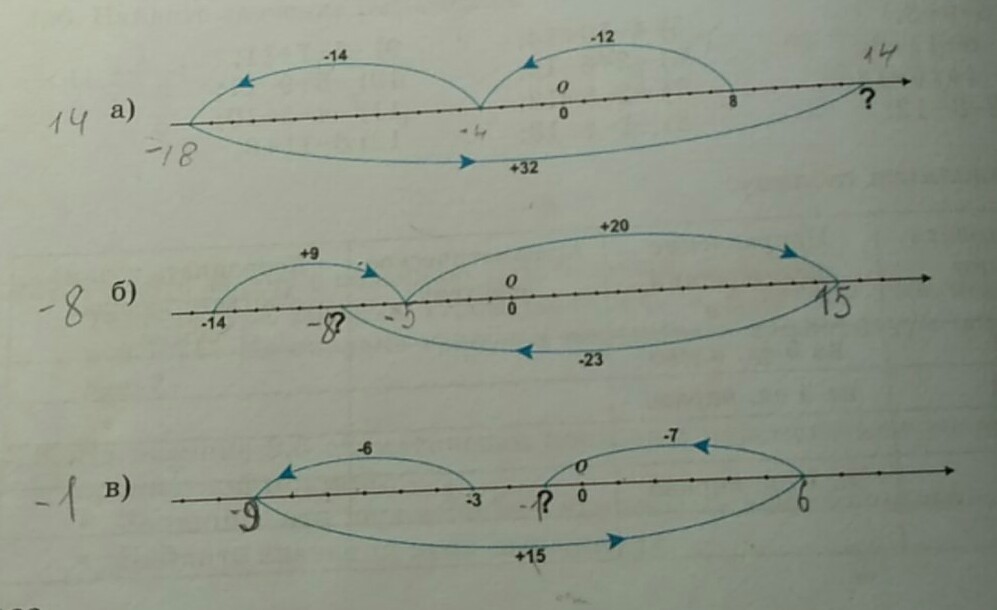 -14 -12 14
14 а) O
-4 0 8 ?
-18 +32
+9 +20
-8 б) O
-14 -8? -5 0 15
-23
-6 -7
-1 в) O
-9 -3 -1? 0 6
+15